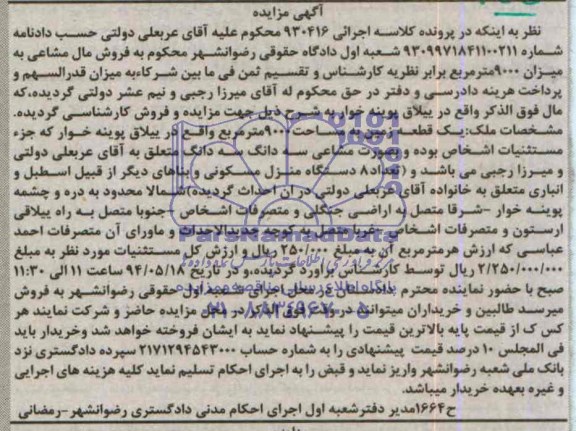 آگهی مزایده
نظر به اینکه در پرونده کلاسه اجرائی ۹۳۰۴۱۶ محکوم علیه آقای عربعلی دولتی حسب دادنامه
شماره ۹۳۰۹۹۷۱۸۴۱۱۰۰۲۱۱ شعبه اول دادگاه حقوقی رضوانشهر محکوم به فروش مال مشاعی به
میزان ۹۰۰۰مترمربع برابر نظریه کارشناس و تقسیم ثمن فی ما بین شرکاءبه میزان قدرالسهم و
پرداخت هزینه دادرسی و دفتر در حق محکوم له آقای میرزا رجبی و نیم عشر دولتی گردیده،که
مال فوق الذکر واقع در ییلاق پوینه خوار به شرح ذیل جهت مزایده و فروش کارشناسی گردیده.
مشخصات ملک:یک قطعه زمین به مساحت ۹۰۰۰مترمربع واقع در ییلاق پوینه خوار که جزء
مستثنیات اشخاص بوده و بصورت مشاعی سه دانگ سه دانگ متعلق به آقای عربعلی دولتی
و میرزا رجبی می باشد و (تعداد۸ دستگاه منزل مسکونی و بناهای دیگر از قبیل اسطبل و
انباری متعلق به خانواده آقای عربعلی دولتی در آن احداث گردیده)شمالا محدود به دره و چشمه
پوینه خوار -شرقا متصل به اراضی جنگلی و متصرفات اشخاص -جنوبا متصل به راه ییلاقی
ارستون و متصرفات اشخاص -غربا متصل به کوچه جدیدالاحداث و ماورای آن متصرفات احمد
عباسی که ارزش هرمترمربع آن به مبلغ ۲۵۰/۰۰۰ ریال و ارزش کل مستثنیات مورد نظر به مبلغ
۲/۲۵۰/۰۰۰/۰۰۰ ریال توسط کارشناس برآورد گردیده.و در تاریخ ۹۴/۰۵/۱۸ ساعت ۱۱ الی ۱۱:۳۰
صبح با حضور نماینده محترم دادستان در محل اجرای شعبه اول حقوقی رضوانشهر به فروش
میرسد طالبین و خریداران میتوانند در وقت فوق الذکر در محل مزایده حاضر و شرکت نمایند هر
کس که از قیمت پایه بالاترین قیمت را پیشنهاد نماید به ایشان فروخته خواهد شد وخریدار باید
فی المجلس ۱۰ درصد قیمت پیشنهادی را به شماره حساب ۲۱۷۱۲۹۴۵۴۳۰۰۰ سپرده دادگستری نزد
بانک ملی شعبه رضوانشهر واریز نماید و قبض را به اجرای احکام تسلیم نماید کلیه هزینه های اجرایی
و غیره بعهده خریدار میباشد.
ح۱۶۶۴مدیر دفترشعبه اول اجرای احکام مدنی دادگستری رضوانشهر-رمضانی
ParsNamadData